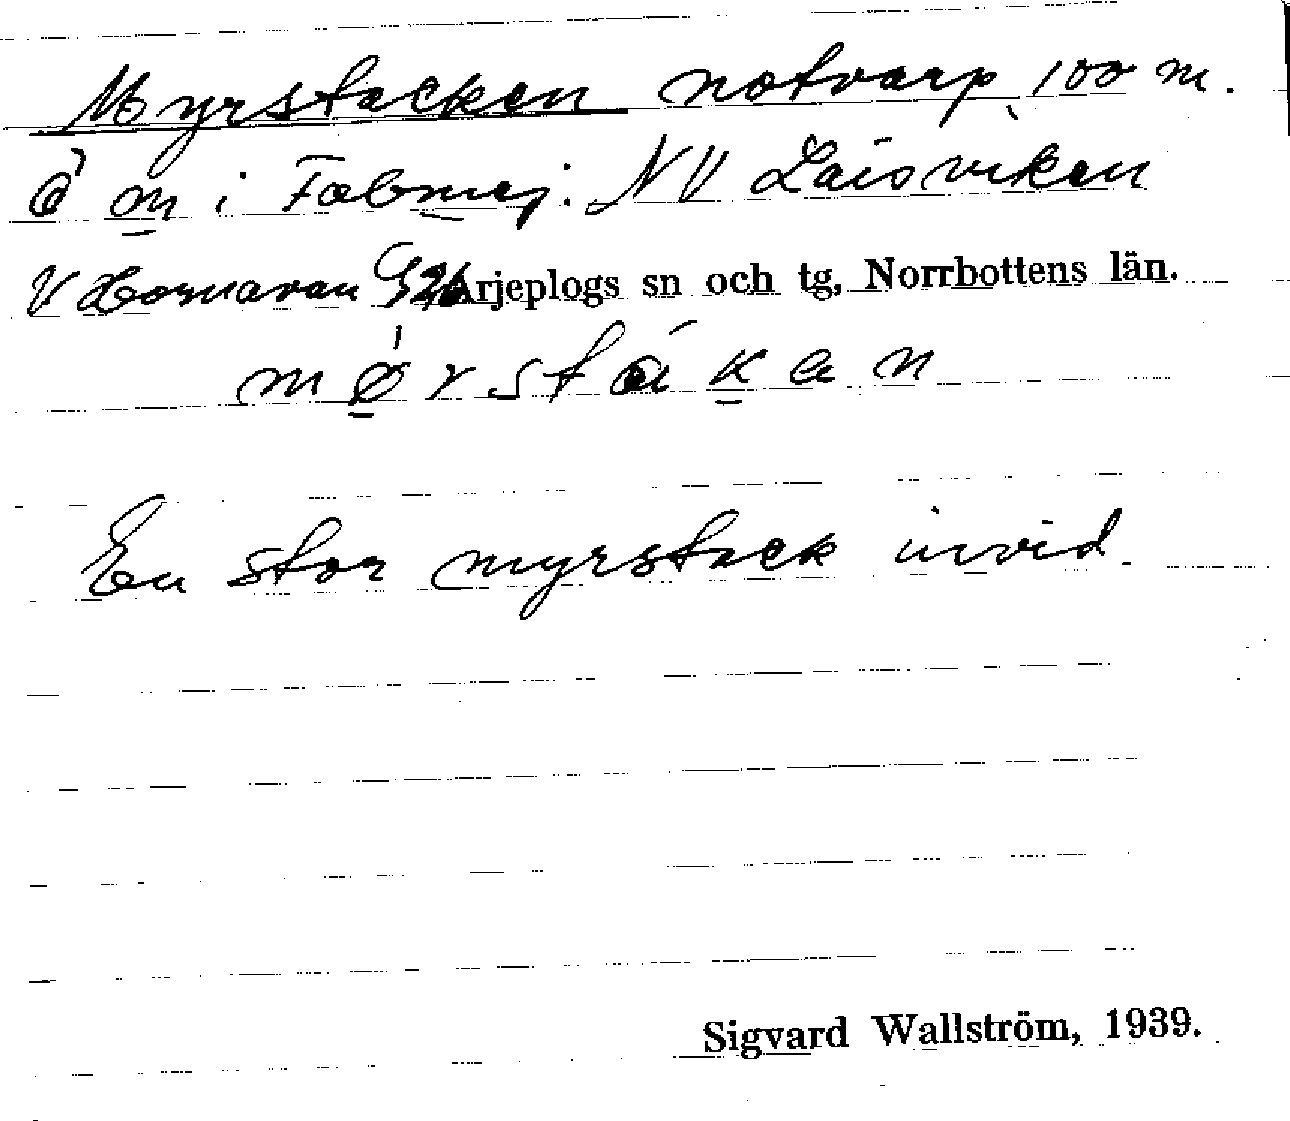 Myrstacken notvarp, 100 m.
Ö m i Fabmej. NV Laisviken
V Hornavan G26 Arjeplogs sn och tg, Norrbottens län.
mørstákan
En stor myrstack invid.
Sigvard Wallström, 1939.